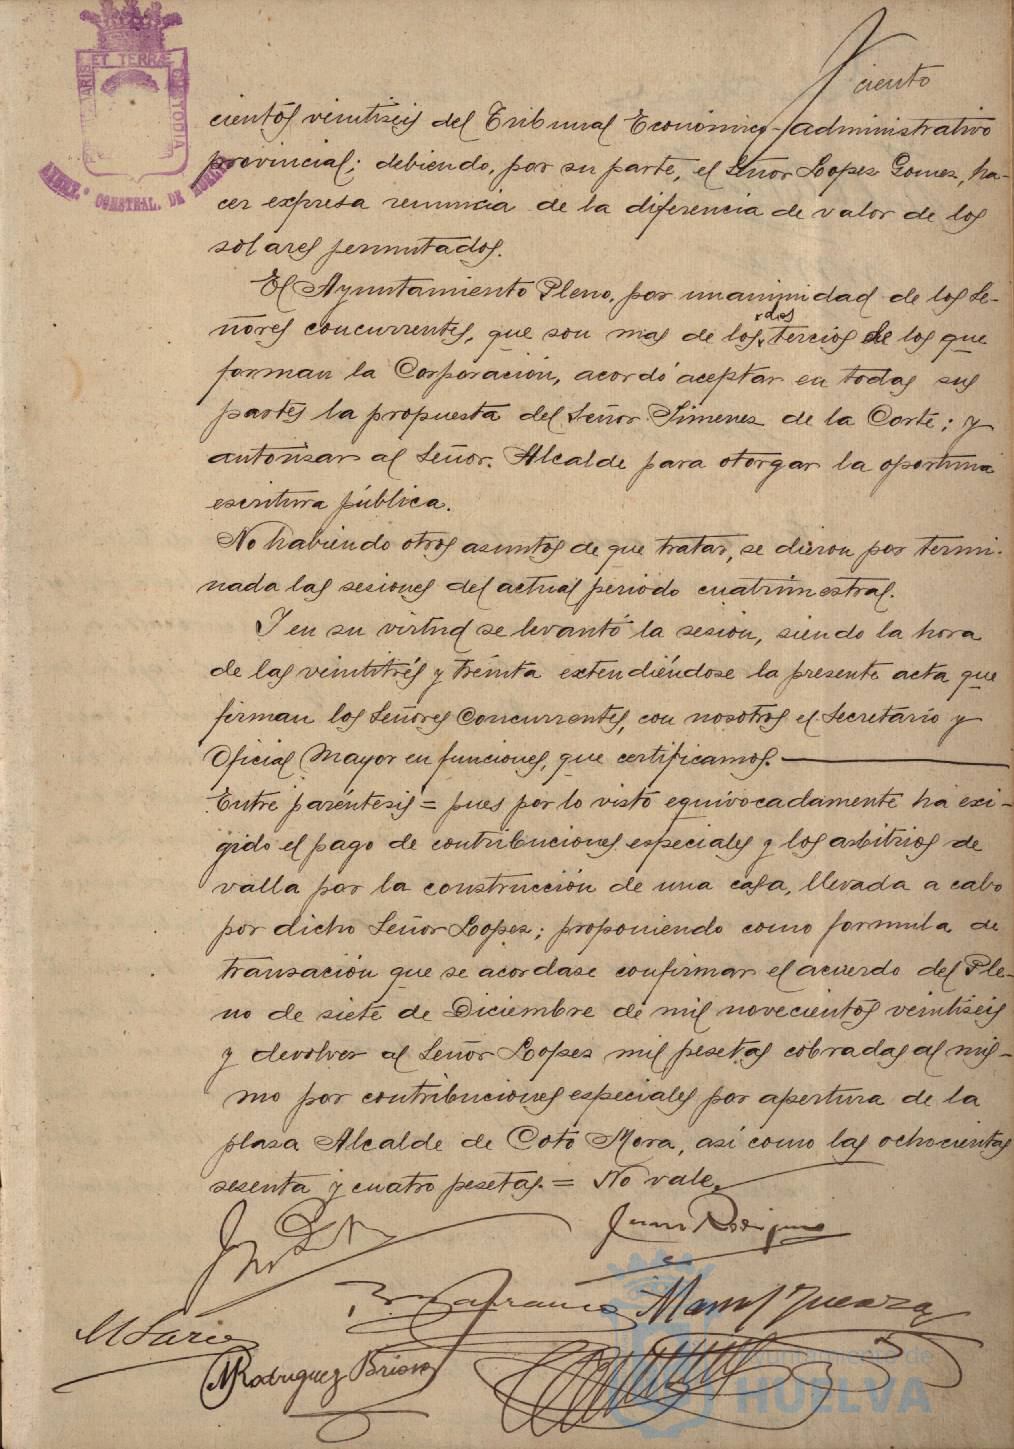 ciento
PORTUS MARIS ET TERRÆ CUSTODIA
cientos veintiseis del Tribunal Económico-administrativo
provincial; debiendo, por su parte, el Señor Lopez Gomez, ha-
cer expresa renuncia de la diferencia de valor de los
solares permutados.
El Ayuntamiento Pleno, por unanimidad de los Se-
ñores concurrentes, que son mas de los dos tercios de los que
forman la Corporación, acordó aceptar en todas sus
partes la propuesta del Señor Jimenez de la Corte; y
autorizar al Señor Alcalde para otorgar la oportuna
escritura pública.
No habiendo otros asuntos de que tratar, se dieron por termi-
nada las sesiones del actual periodo cuatrimestral.
Y en su virtud se levantó la sesión, siendo la hora
de las veintitrés y treinta extendiéndose la presente acta que
firman los Señores Concurrentes, con nosotros el Secretario y
Oficial Mayor en funciones, que certificamos.
Entre paréntesis = pues por lo visto equivocadamente ha exi-
gido el pago de contribuciones especiales y los arbitrios de
valla por la construcción de una casa, llevada a cabo
por dicho Señor Lopez; proponiendo como formula de
transación que se acordase confirmar el acuerdo del Ple-
no de siete de Diciembre de mil novecientos veintiseis
y devolver al Señor Lopez mil pesetas cobradas al mis-
mo por contribuciones especiales por apertura de la
plaza Alcalde de Coto Mora, así como las ochocientas
sesenta y cuatro pesetas. = No vale.
Juan
Manuel
M
MRodriguez Brioso
Ayuntamiento de
HUELVA